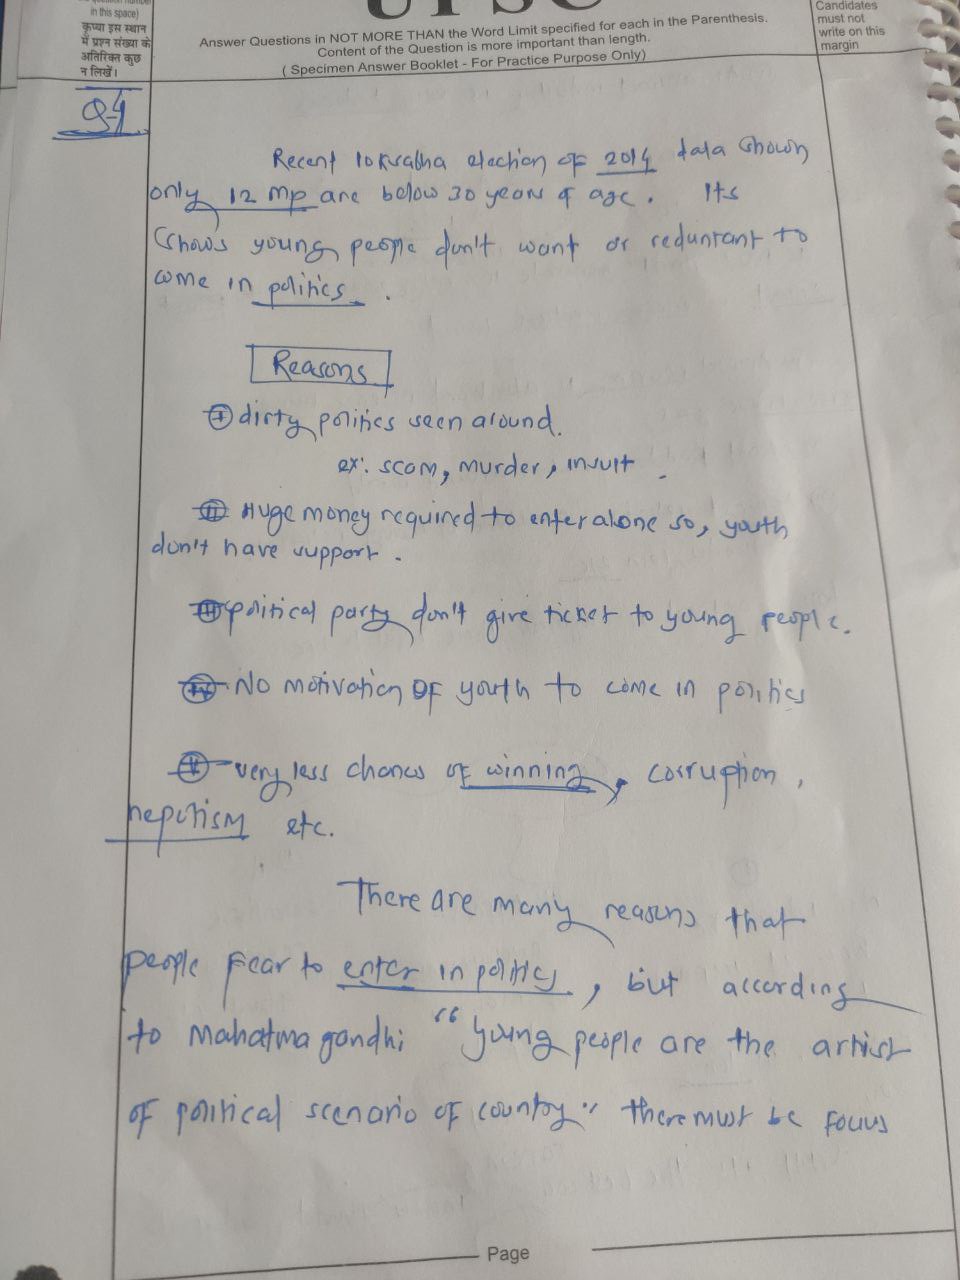 in this space)
कृप्या इस स्थान
में प्रश्न संख्या के
अतिरिक्त कुछ
न लिखें।
UPSC
Answer Questions in NOT MORE THAN the Word Limit specified for each in the Parenthesis.
Content of the Question is more important than length.
( Specimen Answer Booklet - For Practice Purpose Only)
Candidates
must not
write on this
margin
Q-4
Recent loksabha election of 2014 data shown
only 12 mp are below 30 years of age. Its
shows young people don't want or reduntant to
come in politics.
Reasons
I dirty politics seen around.
ex: scam, murder, insult.
II Huge money required to enter alone so, youth
don't have support.
III political party don't give ticket to young people.
IV No motivation of youth to come in politics
V very less chances of winning, corruption,
nepotism etc.
There are many reasons that
people fear to enter in politics, but according
to Mahatma gandhi "young people are the artist
of political scenario of country" there must be focus
Page